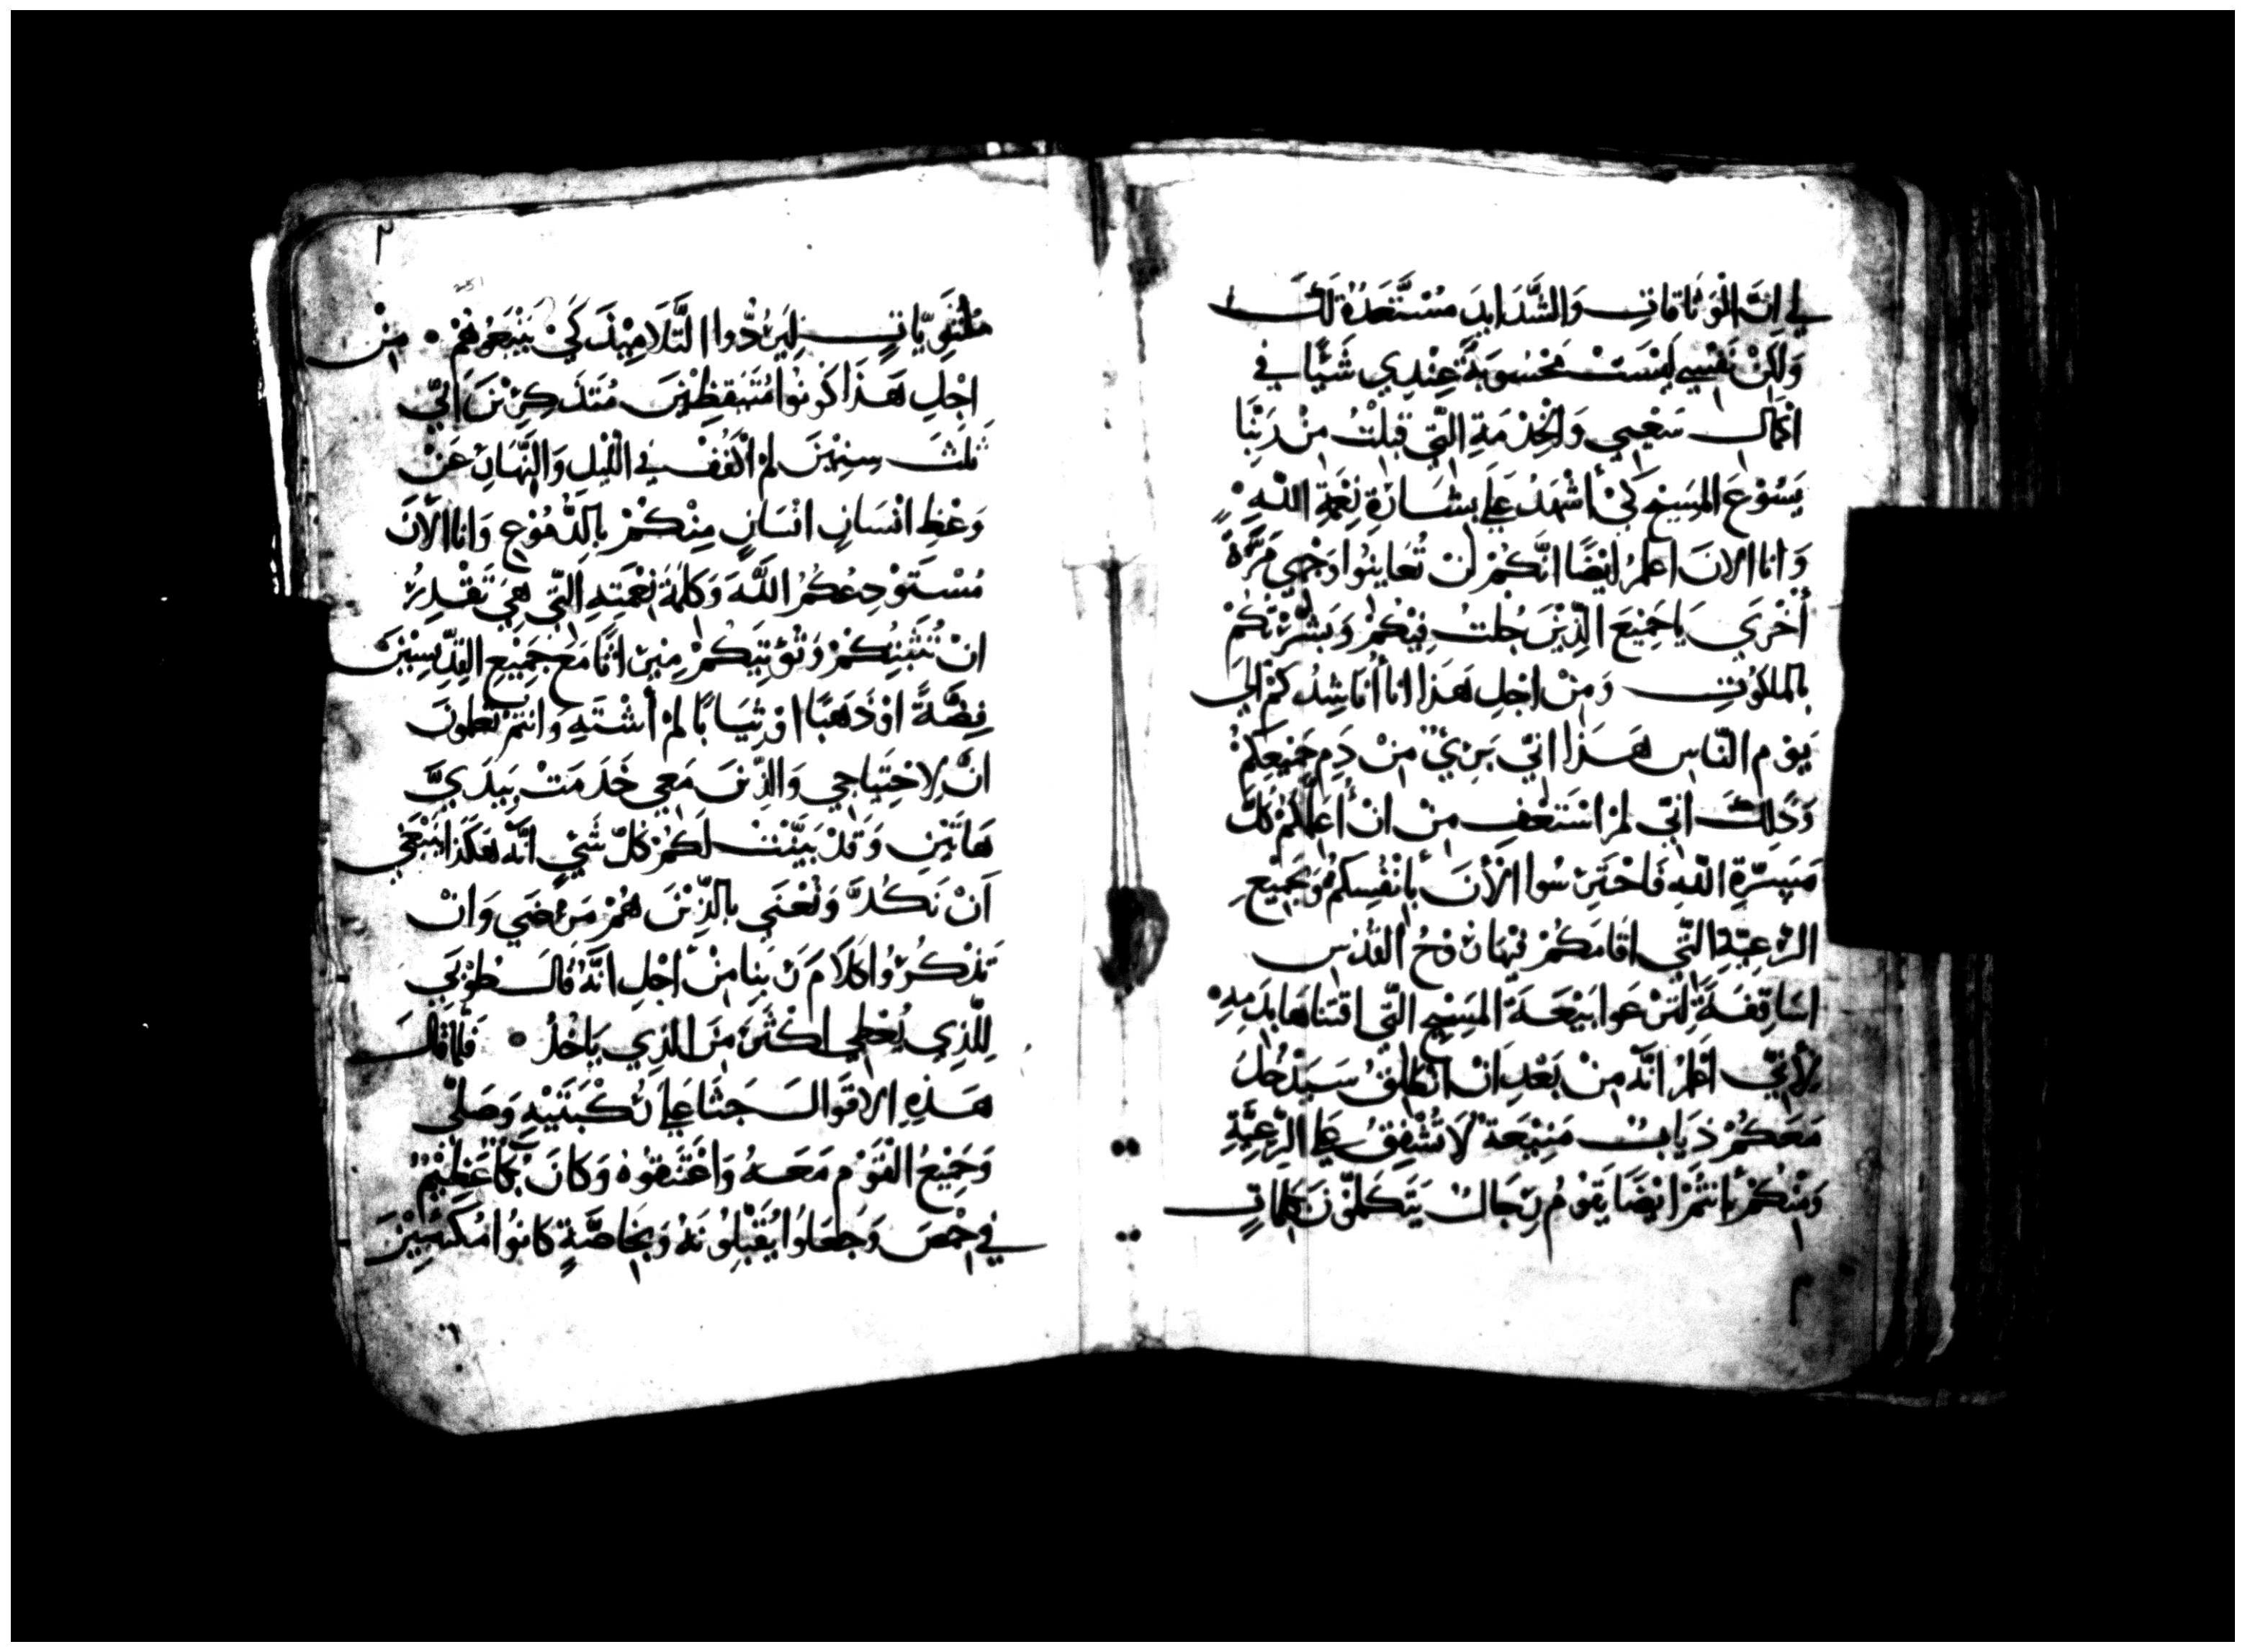 لي انَّ الْوَثَاقاتِ وَالشَّدَايِدَ مُسْتَعَدَةٌ لَكَ
وَلَكِنْ نَفْسِي لَيْسَتْ مَحْسُوبَةً عِنْدِي شَيْئًا في
اكمال سَعْيِي وَالْخِدْمَةِ الَّتي قبلْتُ مِنْ رَبِّنَا
يَسُوْعَ المَسِيْحِ كَيْ أَشْهَدُ عَلَى بِشَارَةِ نِعْمَةِ اللهِ
وَانا الانَ اعْلمُ ايْضًا انَّكُمْ لَنْ تُعَاينُوا وَجْهي مَرَّةً
أُخْرَي يَا جَمِيْعَ الَّذِيْنَ جُلْتُ فِيْكُمْ وَبَشَّرْتُكُمْ
بالملكُوْتِ وَمِنْ اجْلِ هَذَا انا أُنَاشِدُكُمْ الي
يَوْمِ النَّاسِ هَذَا انّي بَرِيْ مِنْ دَمِ جَمِيْعِكُمْ
وَذَلِكَ انّي لمْ اسْتَعْفِ مِنْ انْ أُعَلِّمَكُمْ كُلَّ
مَسِرَّةِ اللهِ فَاحْتَرِسُوا الْأَنَ بِأَنْفُسِكُمْ وَبجَمِيْعِ
الرَّعِيَّةِ الَّتي اقَامَكُمْ فيْهَا رُوْحُ القُدْسِ
اسَاقِفَةً لِتَرْعَوا بَيْعَةَ المَسِيْحِ الَّتي اقتناهَا بدَمِهِ
لِأَنّي اعْلمُ انَّه مِنْ بَعْدِ انْ انْطَلِقُ سَيَدْخُلُ
مَعَكُمْ ذِيَابٌ مَنِيْعَةٌ لَا تُشْفِقُ عَلَى الرَّعِيَّةِ
وَمِنْكُمْ أَنْتُمْ ايْضًا يَقوْمُ رِجَالٌ يَتَكَلَّمُوْنَ بكَلِمَاتٍ
مُلْتَوِيَاتٍ لِيَرُدُّوا التَّلَامِيْذَ كَيْ يَتْبَعُوْهُمْ • مِنْ
اجْلِ هَذَا كُونُوا مُتَيَقِظِيْنَ مُتَذَكِرِيْنَ انّي
ثَلثَ سِنِيْنَ لمْ اكْفُفْ في اللَّيْلِ وَالنَّهَارِ عَنْ
وَعْظِ انْسَانٍ انْسَانٍ مِنْكُمْ بالدُّمُوْعِ وَانا الْأَنَ
مُسْتَوْدِعُكُمُ اللَّهَ وَكَلمَةَ نِعْمَتِهِ الَّتي هِيَ تَقْدِرُ
انْ تُثَبِّتَكُمْ وَتُؤْتِيَكُمْ مِيْرَاثًا مَعَ جَمِيْعِ القِدِّيْسِيْنَ
فِضَّةً اوْ ذَهَبًا اوْ ثِيَابًا لمْ أَشْتَهِ وَانتمْ تعلمُونَ
انَّ لِاحْتِيَاجِي وَالَّذِيْنَ مَعِي خَدَمَتْ يَدَيَّ
هَاتَيْنِ وَقَدْ بَيَّنْتُ لَكُمْ كلَّ شَيْءٍ انَّه هَكَذَا يَنْبَغِي
أَنْ نَكُدَّ وَنُعْنَي بالَّذِيْنَ هُمْ مَرْضَي وَانْ
تَذْكُرُوا كَلَامَ رَبِّنَا مِنْ اجْلِ انَّهُ قَالَ طُوْبَي
لِلَّذِي يُعْطِي اكْثَرَ مِنَ الَّذِي يَاخُذُ • فَلمَّا قَالَ
هَذِهِ الاقْوَالَ جَثَا عَلَى رُكْبَتَيْهِ وَصَلَّى
وَجَمِيْعُ الْقَوْمِ مَعَهُ وَاعْتَنَقوْهُ وَكانَ بُكَا عَظِيْمٌ
في جمْعَ وَجَعَلوا يُقَبِّلُوْنَهُ وَبخَاصَّةٍ كانُوا مُكْتَئِبِيْنَ